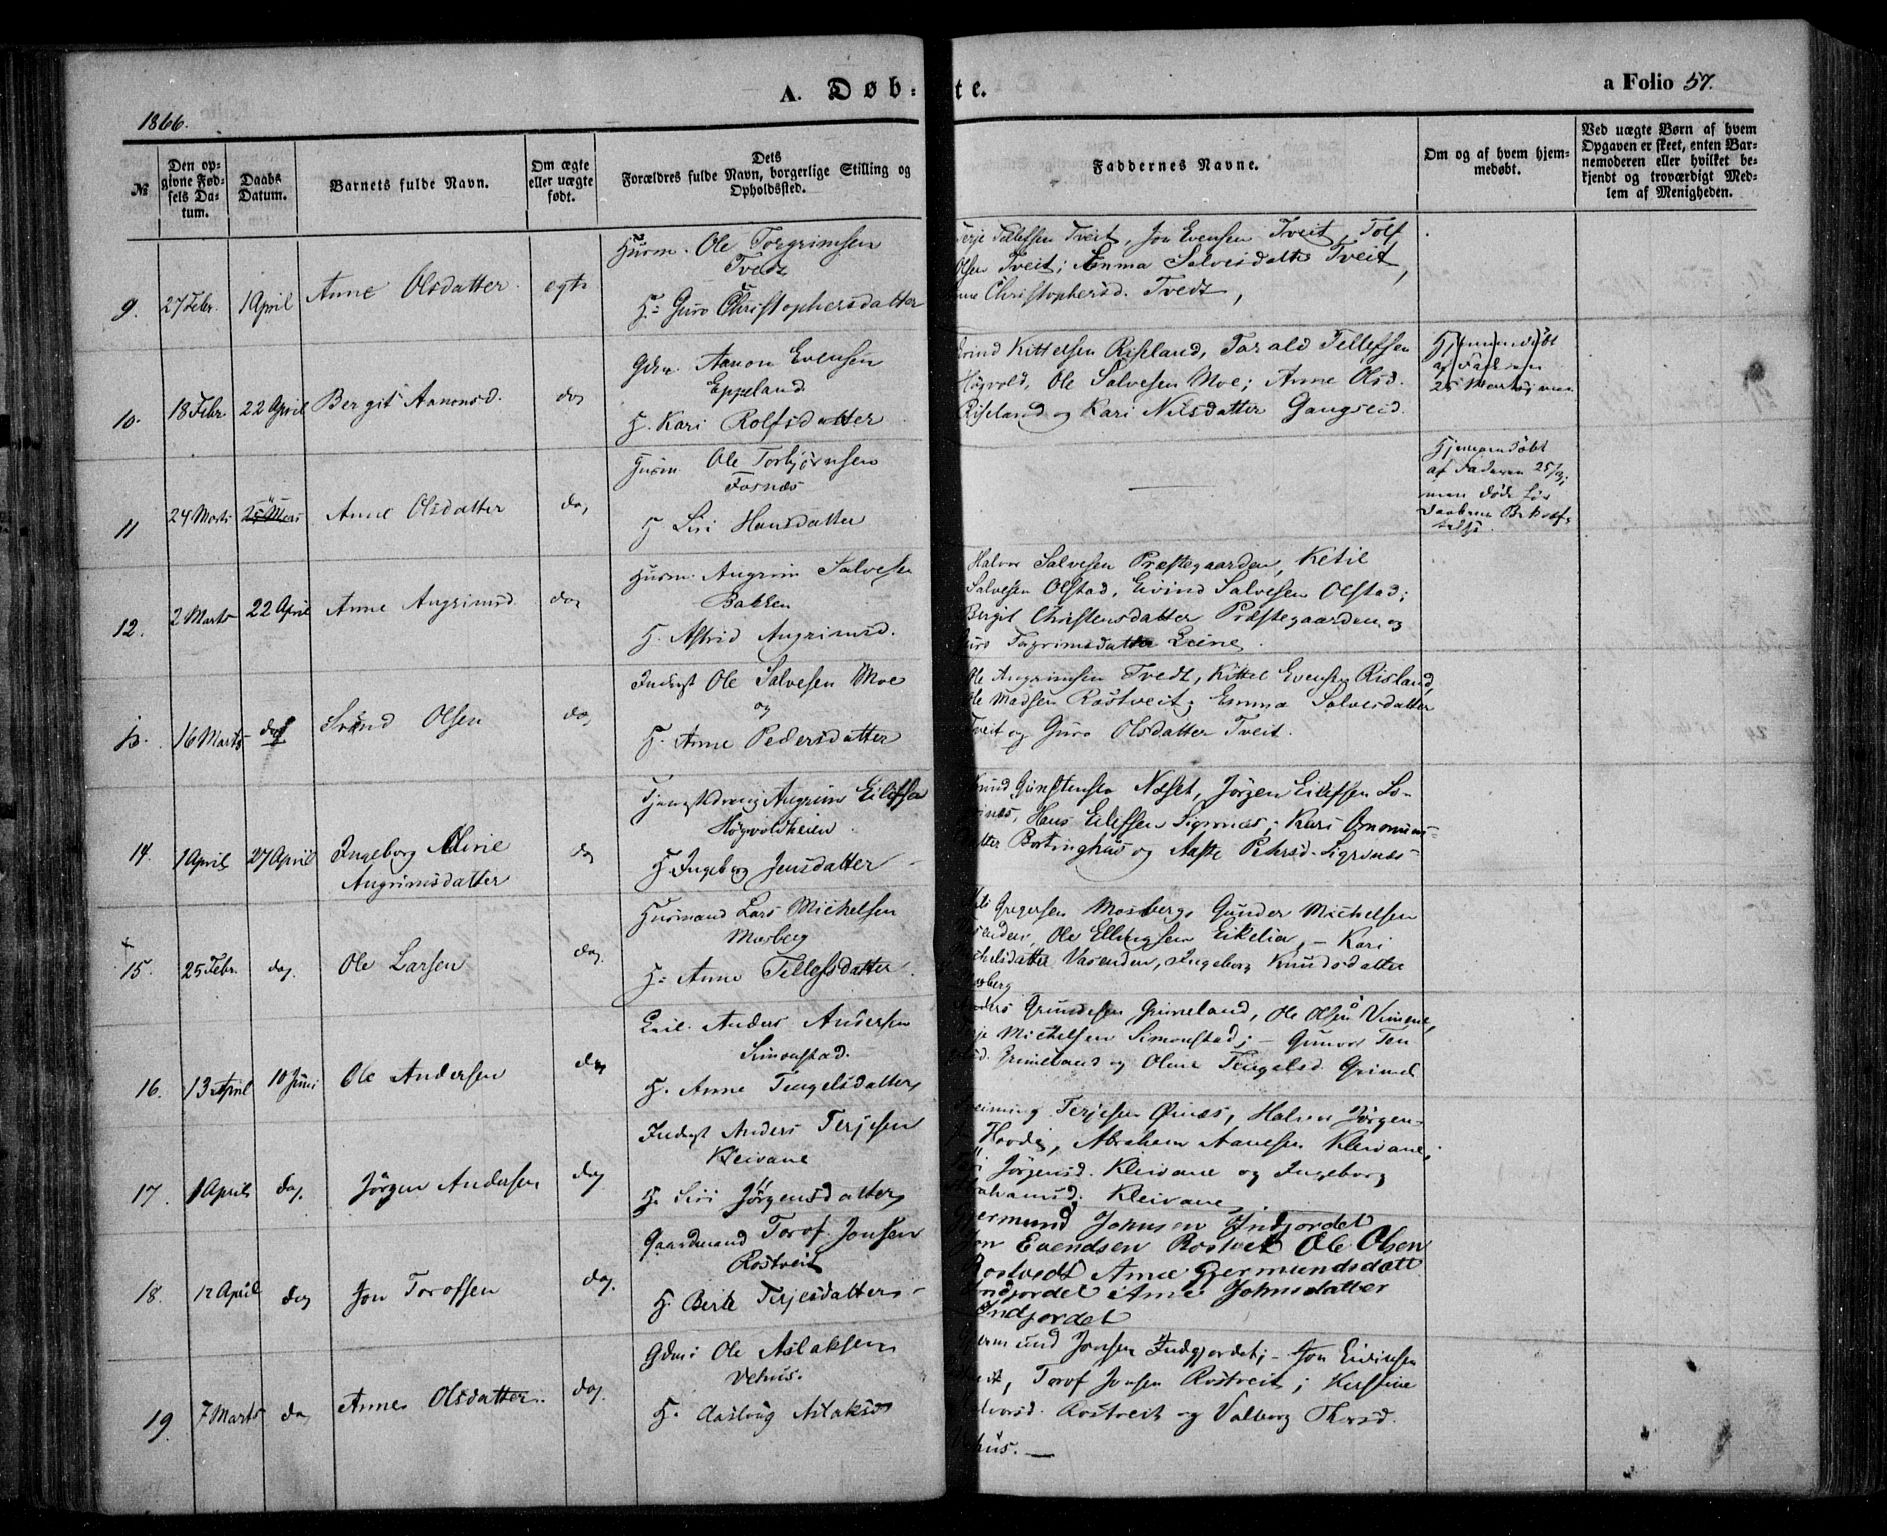 A. Døb-
te.
a Folio 57.
1866.
№
Den op-
givne Fød-
sels Da-
tum.
Daabs
Datum.
Barnets fulde Navn.
Om ægte
eller uægte
født.
Dets
Forældres fulde Navn, borgerlige Stilling og
Opholdssted.
Faddernes Navne.
Om og af hvem hjem-
medøbt.
Ved uægte Børn af hvem
Opgaven er skeet, enten Bar-
nemoderen eller hvilket be-
kjendt og troværdigt Med-
lem af Menigheden.
9. 27 Febr. 1 April Anne Olsdatter. egte
Husm. Ole Torgrimsen
Tvedt
H: Guro Christophersdatter
Terje Tellefsen Tveit, Jon Evensen Tveit, Tolf
Olsen Tveit; Emma Salvesdatter Tveit,
Christophersd. Tvedt,
10. 18 Febr 22 April Bergit Aanonsd. do
Gdm. Aanon Evensen
Eppeland
H. Kari Rolfsdatter
Eivind Kittelsen Riseland, Tarald Tellefsen
Høgvold, Ole Salvesen Moe; Anne Olsd.
Riseland og Kari Nilsdatter Gangseid.
Hjemmedøbt
af Faderen
25 Marts
11 24 Marts 25 Mars Anne Olsdatter do,
Husm Ole Torbjørnsen
Fosnæs
H Siri Hansdatter
Hjemmedøbt
af Faderen 25/3;
men døde før
Daabens Bekræf-
telse.
12. 2 Marts 22 April Anne Angrimsd do
Husm. Angrim Salvesen
Bakken
H. Astrid Angrimsd.
Halvor Salvesen Præstegaarden, Ketil
Salvesen Olstad, Eivind Salvesen Olstad;
Bergit Christensdatter Præstegaarden og
Guro Tagrimsdatter Leine.
13. 16 Marts do Svend Olsen do,
Inderst Ole Salvesen Moe
og
H. Anne Pedersdatter
Ole Angrimsen Tvedt, Kittel Evensen Risland,
Ole Madsen Rostveit; Emma Salvesdatter
Tveit og Guro Olsdatter Tveit.
14. 1 April 27 April Ingeborg Oline
Angrimsdatter do
Tjenestedreng Angrim Eilefsen
Høgvoldheien
H Ingeborg Jensdatter
Knud Gunstensen Næset, Jørgen Eilefsen
Hans Eilefsen Sigrnæs; Kari
og Aaste Pedersd. Sigrnæs
15. 25 Febr. do. Ole Larsen do.
Husmand Lars Michelsen
Mosberg
H: Anne Tellefsdatter
Gregersen Mosberg, Gunder Michelsen
Vasenden, Ole Ellingsen Eikelia, – Kari
Michelsdatter Vasenden, Ingeborg Knudsdatter
Mosberg
16. 13 April 10 Juni Ole Andersen do
Anders Andersen
Simonstad.
H. Anne Tengelsdatter
Anders Gundersen Grimeland, Ole Olsen Vimme,
Terje Michelsen Simonstad; – Gunvor
Grimeland og Oline Tengelsd. Grimel
17. 1 April do. Jørgen Andersen do
Inderst Anders Terjesen
Kleivane
H. Siri Jørgensdatter
Terjesen Øinæs, Halvor Jørgen-
Hovdes, Abraham Aanesen Kleivane,
Jørgensd. Kleivane og Ingeborg
Abrahamsd. Kleivane.
18. 12 April do Jon Torofsen do.
Gaardmand Torof Jonsen
Rostveit
H. Berte Terjesdatter
Gjermund Johnsen Indjordet
Jon Evendsen Rostveit Ole Olsen
Rostvedt Anne Gjermundsdatt
Indjordet Anne Johnsdatter
Indjordet
19. 7 Marts do Anne Olsdatter. do.
Gdm: Ole Aslaksen
Vehus.
H. Aaslaug Aslaksd
Gjermund Jonsen Indgjordet; – Jon Eivinsen
Torof Jonsen Rostveit; Kirstine
Halvorsd. Rostveit og Valborg
Vehus. —